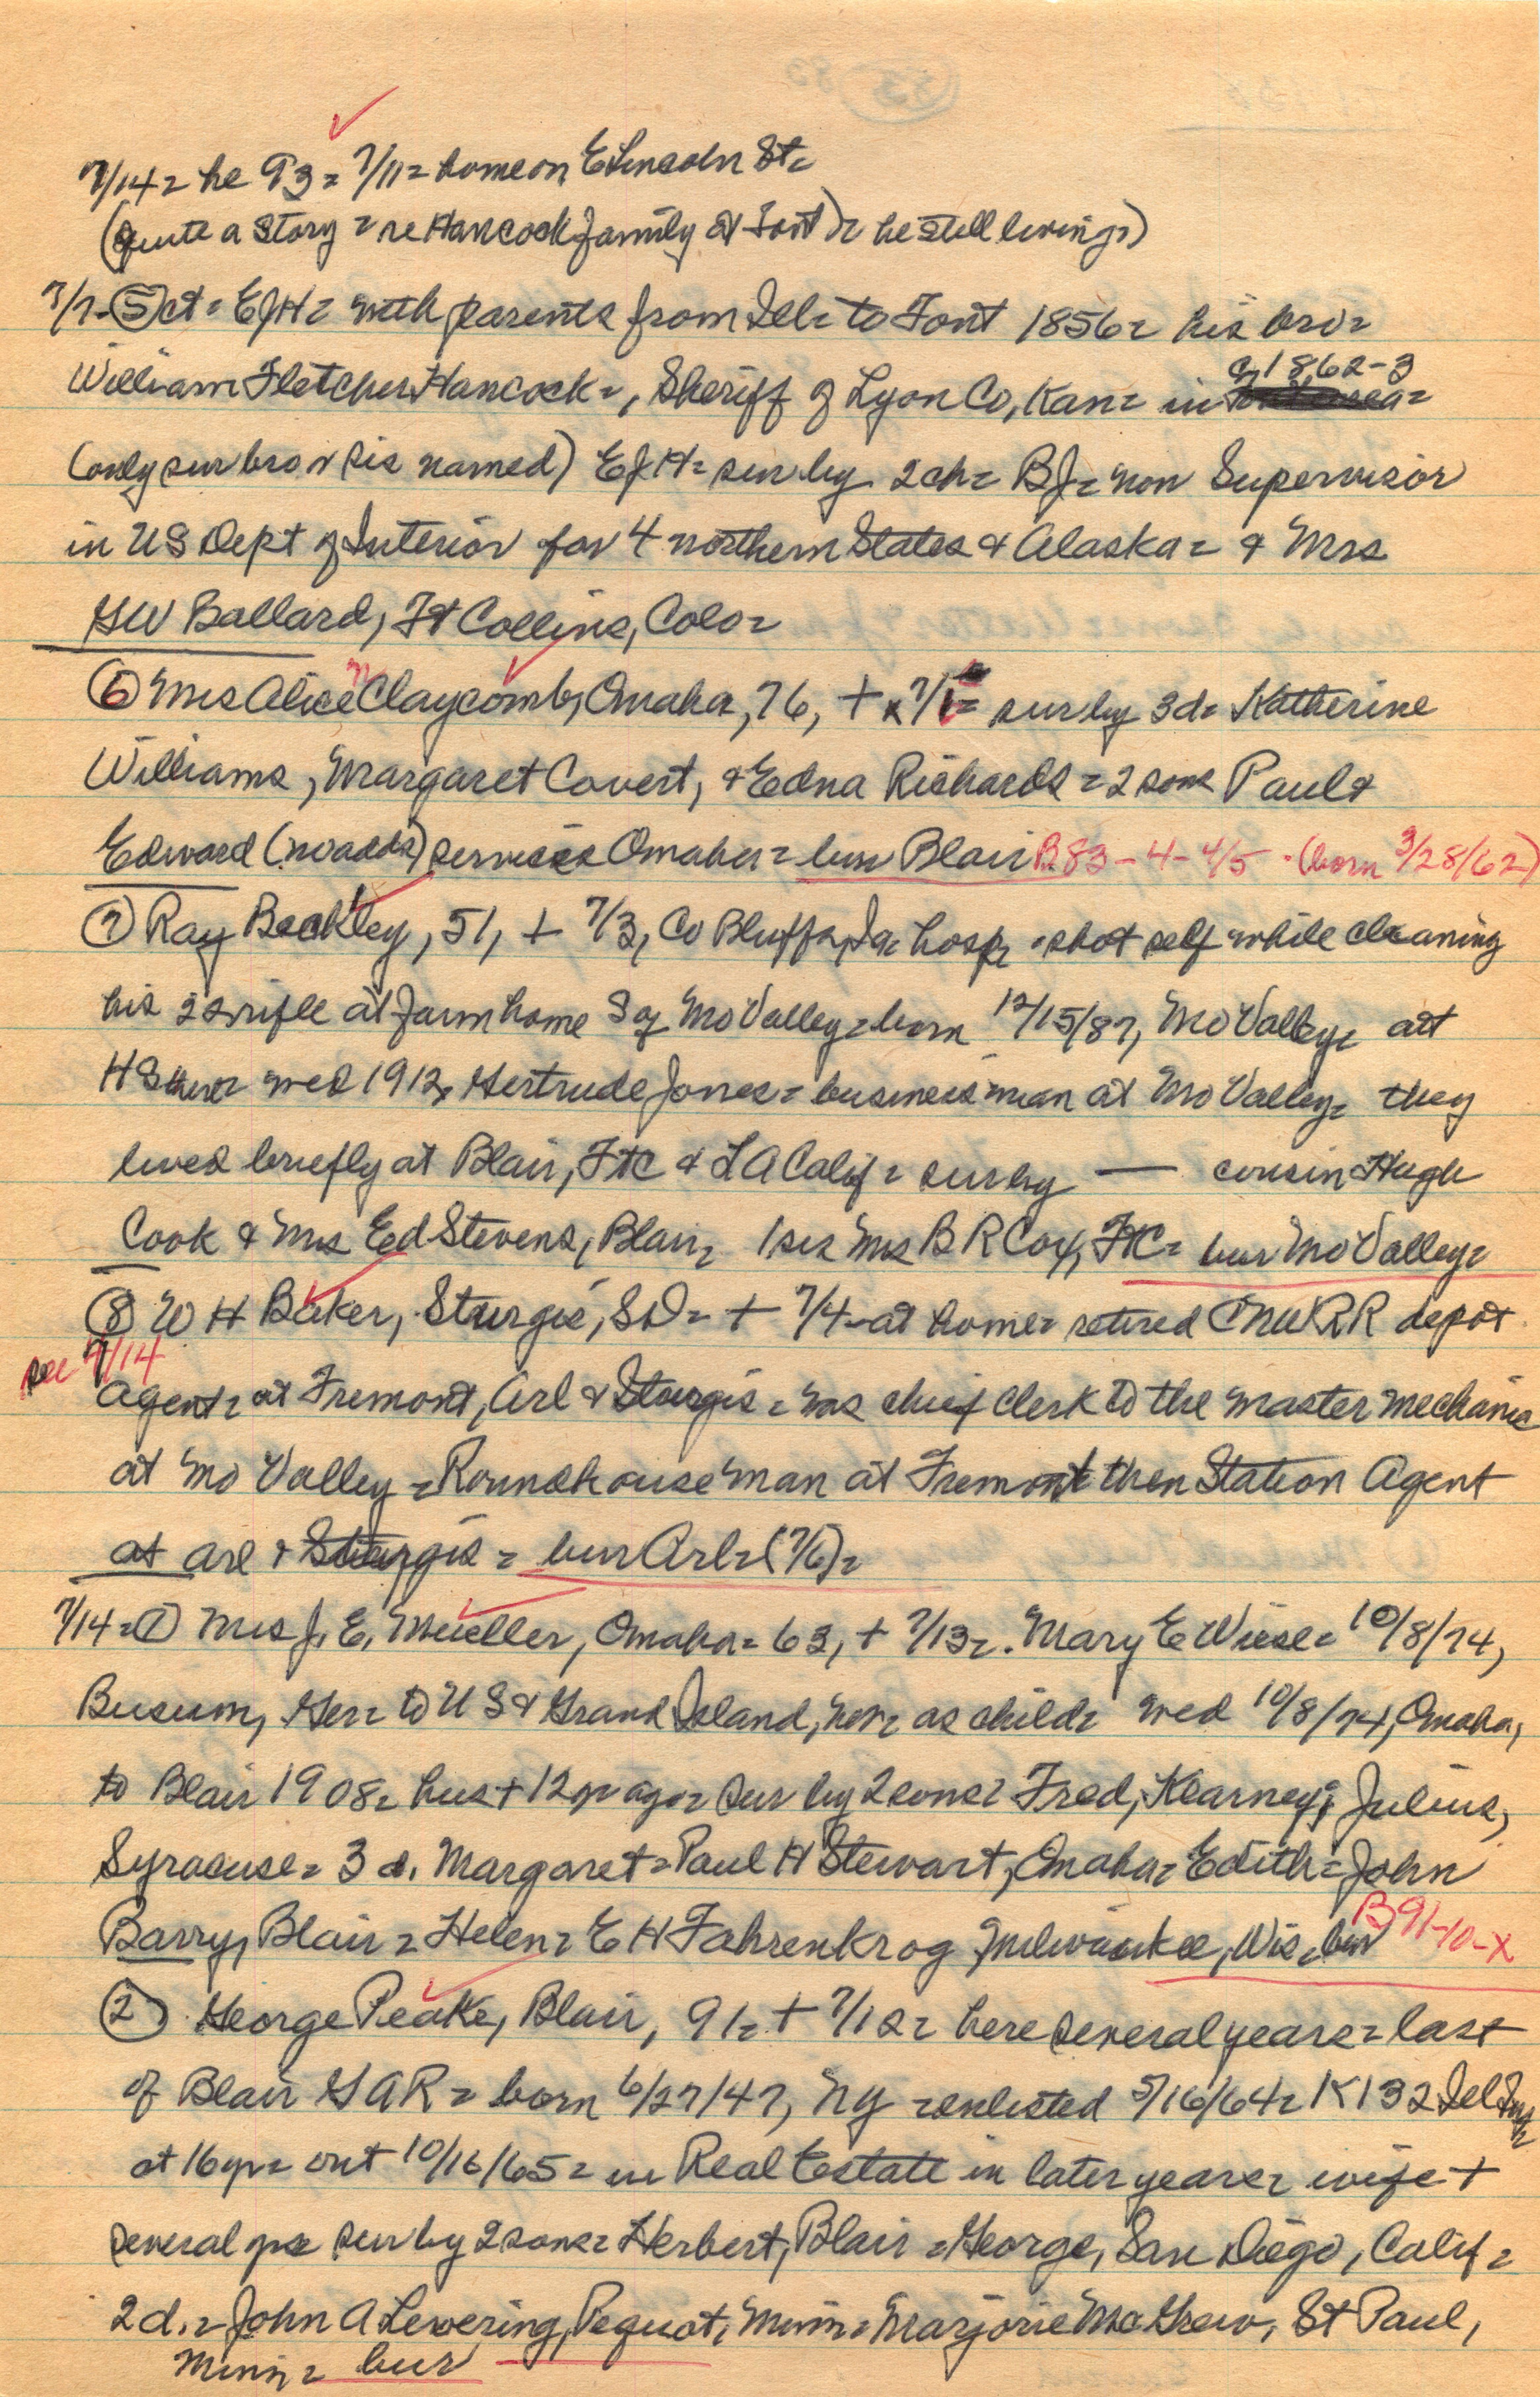 7/14 = he 93 = 7/11 = home on E Lincoln St =
(quite a story = re Hancock family at Font) = he still living =)
7/7 - (5) ct = EJH = with parents from Ill = to Font 1856 = his bro =
William Fletcher Hancock =, Sheriff of Lyon Co, Kan = in c1862-3
(only sur bro or sis named) EJH = sur by 2ch = BJ = now Supervisor
in US Dept of Interior for 4 northern States & Alaska = & Mrs
GW Ballard, Ft Collins, Colo =
(6) Mrs Alice M Claycomb, Omaha, 76, + 7/1 = sur by 3d = Katherine
Williams, Margaret Covert, & Edna Richards = 2 sons Paul &
Edward (no adds) services Omaha = bur Blair B83-4-4/5 - (born 3/28/62)
(7) Ray Beckley, 51, + 7/3, Co Bluffs, Ia hosp = shot self while cleaning
his 22 rifle at farm home S of Mo Valley = born 12/15/87, Mo Valley = att
HS there = wed 1912, Gertrude Jones = business man at Mo Valley = they
lived briefly at Blair, FtC & LA Calif = sur by — cousin Hugh
Cook & Mrs Ed Stevens, Blair = 1 sis Mrs B R Cox, FtC = bur Mo Valley =
(8) W H Baker, Sturgis, SD = + 7/4 - at home = retired CNWRR depot
see 7/14
agent = at Fremont, Arl & Sturgis = was chief clerk to the master mechanic
at Mo Valley = Roundhouse man at Fremont then Station Agent
at Arl & Sturgis = bur Arl = (7/6) =
7/14 = (1) Mrs J. E. Mueller, Omaha = 63, + 7/13 = Mary E Wiese = 10/8/74,
Busum, Ger = to US & Grand Island, Neb = as child = wed 10/8/74, Omaha,
to Blair 1908 = hus + 12 yr ago = sur by 2 sons = Fred, Kearney; Julius,
Syracuse = 3 d. Margaret = Paul H Stewart, Omaha = Edith = John
Barry, Blair = Helen = E H Fahrenkrog Milwaukee, Wis = bur B 91-10-X
(2) George Peake, Blair, 91 = + 7/12 = here several years = last
of Blair GAR = born 6/27/47, NY = enlisted 5/16/64 = K 132 Ill Inf =
at 16 yr = out 10/16/65 = in Real Estate in later years = wife +
several yrs = sur by 2 sons = Herbert, Blair = George, San Diego, Calif =
2 d. = John A Levering, Pequot, Minn = Marjorie McGrew, St Paul,
Minn = bur